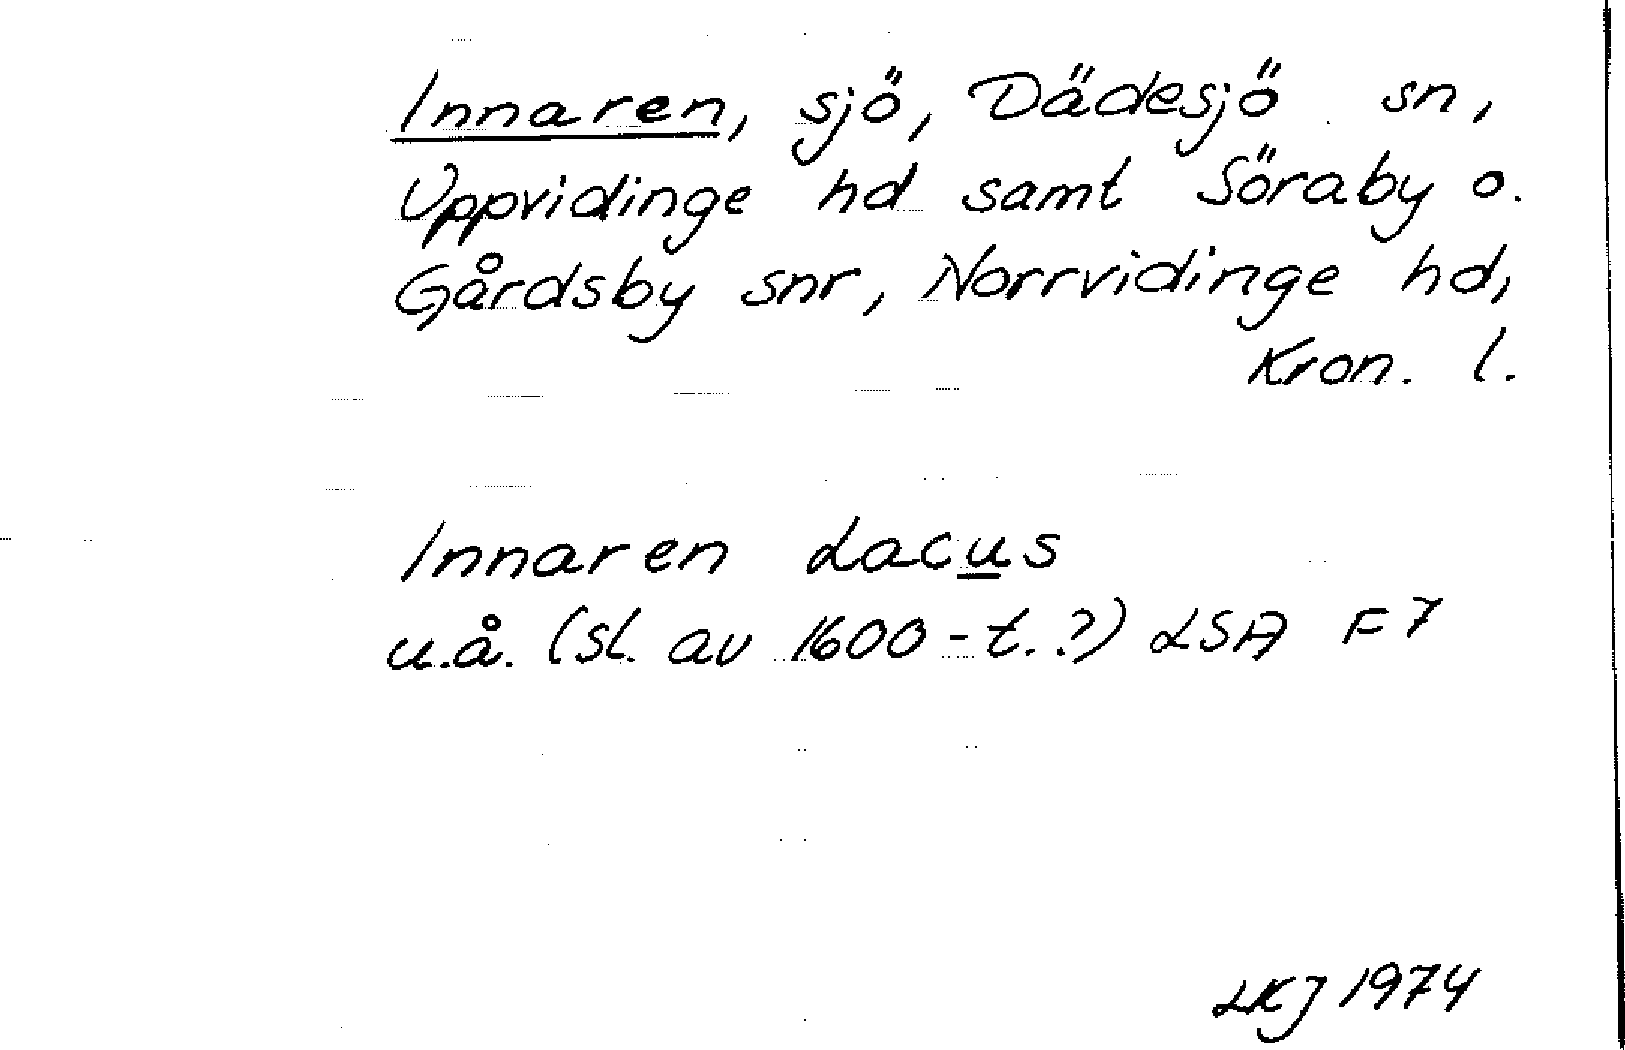 Innaren, sjö, Dädesjö sn,
Uppvidinge hd samt Söraby o.
Gårdsby snr, Norrvidinge hd,
Kron. l.
Innaren Lacus
u.å. (sl. av 1600-t.?) LSA F7
LKJ 1974